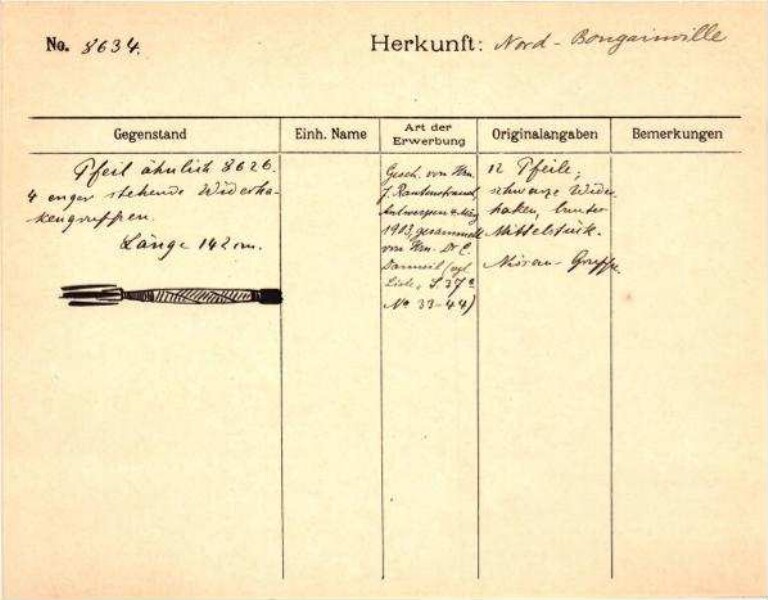 No. 8634.
Herkunft: Nord - Bougainville
Gegenstand
Einh. Name
Art der Erwerbung
Originalangaben
Bemerkungen
Pfeil ähnlich 8626.
4 enger stehende Widerha-
kengruppen.
Länge 142 cm.
Gesch. von Hrn.
J. Rautenstrauch,
Antwerpen 4 März
1903, gesammelt
von Hrn. Dr C.
Danneil (vgl
Liste, S. 37
No 33-44)
12 Pfeile;
schwarze Wider-
haken, bunter
Mittelstück.